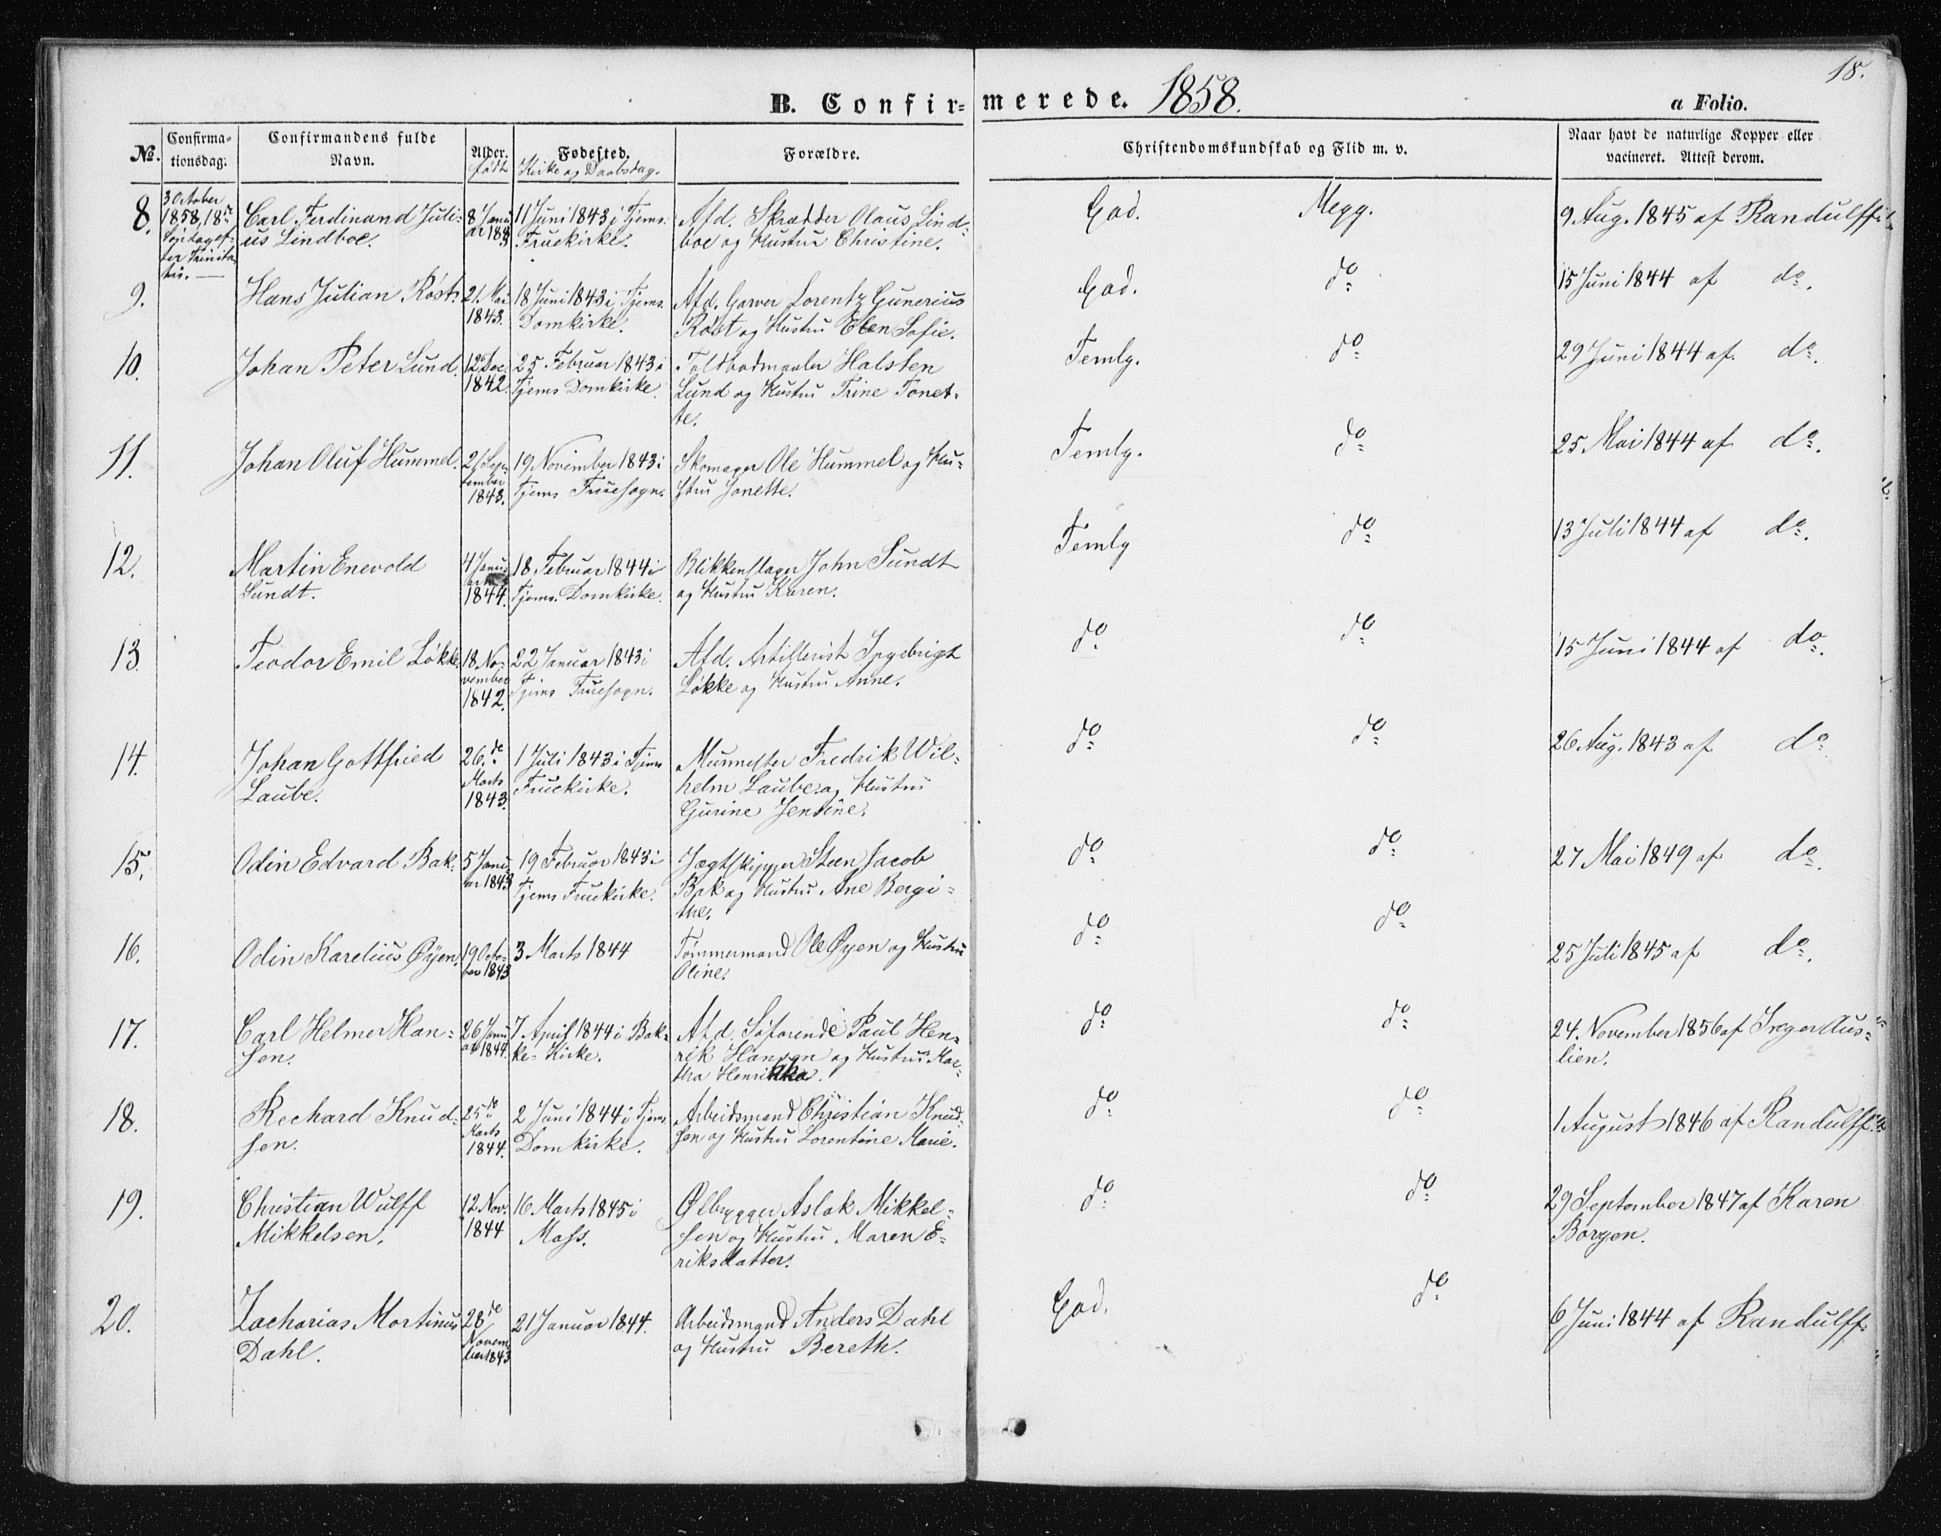 18.
B. Confirmerede. 1858. a Folio.
No. Confirmationsdag. Confirmandens fulde Navn. Alder. født Fødested. Kirke og Daabsdag. Forældre. Christendomskundskab og Flid m. v. Naar havt de naturlige Kopper eller vacineret. Attest derom.
8. 3 October 1858, 18de Søndag efter Trinitatis.
Carl Ferdinand Juli-
us Lindboe.
8 Janu
ar 1843
11 Juni 1843 i Tjems.
Fruekirke.
Afd. Skrædder Olaus Lind-
boe og Hustru Christine.
God. Megg.
9 Aug. 1845 af Randulff
9.
Hans Julian Røst
21. Mai
1843.
18 Juni 1843 i Tjems.
Domkirke.
Afd. Garver Lorentz Gunerius
Røst og Hustru Elen Sofie.
God. do
15 Juni 1844 af do.
10.
Johan Peter Lund.
12 Dec.
1842.
25 Februar 1843 i
Tjems Domkirke.
Toldbodmaaler Halsten
Lund og Hustru Trine Tonet-
te.
Temlg. do
29 Juni 1844 af do.
11.
Johan Oluf Hummel.
21 Sep-
tember
1843.
19 November 1843 i
Tjems Fruesogn.
Skomager Ole Hummel og Hu-
stru Jonette.
Temlg. do
25 Mai 1844 af do.
12.
Martin Enevold
Sundt.
4 Janu-
ar
1844.
18. Februar 1844 i
Tjems. Domkirke.
Blikkenslager John Sundt
og Hustru Karen.
Temlg do
13 Juli 1844 af do.
13.
Teodor Emil Løkke
18 No-
vember
1842.
22 Januar 1843 i
Tjems Fruesogn.
Afd. Artillerist Ingebrigt
Løkke og Hustru Anne.
do do
15 Juni 1844 af do.
14.
Johan Gottfried
Laube.
26.de
Marts
1843.
1 Juli 1843 i Tjems
Fruekirke.
Murmester Fredrik Wil-
helm Laube og Hustru
Gurine Jensine.
do do
26 Aug. 1843 af do
15.
Odin Edvard Bak.
5 Janu-
ar 1843
19 Februar 1843 i
Tjems Fruekirke.
Jægtskipper Steen Jacob
Bak og Hustru Ane Bergi-
the.
do do
27 Mai 1849 af do.
16.
Odin Karelius Øyen
19 Octo-
ber 1843
3 Marts 1844
Tømmermand Ole Øyen og Hustru
Oline.
do do
25 Juli 1845 af do.
17.
Carl Helmer Han-
sen.
26 Janu
ar 1844.
7 April 1844 i Bak-
ke-Kirke.
Afd. Søfarende Paul Hen-
rik Hansen og Hustru Mar-
tha Henrikka.
do do
24. November 1856 af Aus-
lien.
18.
Rechard Knud-
sen.
25de
Marts
1844.
2 Juni 1844 i Tjems
Domkirke.
Arbeidsmand Christian Knud-
sen og Hustru Lorentine Marie.
do do
1 August 1846 af Randulff
19.
Christian Wulff
Mikkelsen.
12. Nov.
1844
16. Marts 1845 i
Moss.
Ølbrygger Aslak Mikkel-
sen og Hustru Maren E-
riksdatter.
do do
29 September 1847 af Karen
Borgen.
20.
Zacharias Martinus
Dahl.
28de
Novem
ber 1843
21 Januar 1844.
Arbeidsmand Anders Dahl
og Hustru Bereth.
God. do
6 Juni 1844 af Randulff